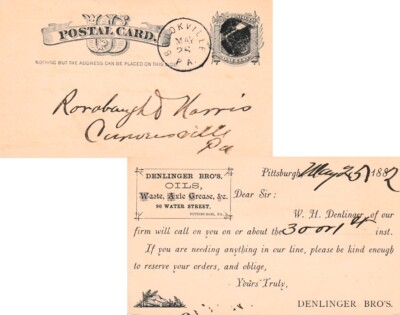 US
POSTAL CARD.
NOTHING BUT THE ADDRESS CAN BE PLACED ON THIS SIDE
BROOKVILLE
MAY
25
PA
Rorabaugh & Harris
Curwensville
Pa
DENLINGER BRO'S.
OILS,
Waste, Axle Grease, &c.
30 WATER STREET.
PITTSBURGH, PA.
Pittsburgh, May 25, 1882
Dear Sir:
W. H. Denlinger of our
firm will call on you on or about the 30 inst.
If you are needing anything in our line, please be kind enough
to reserve your orders, and oblige,
Yours Truly,
DENLINGER BRO'S.